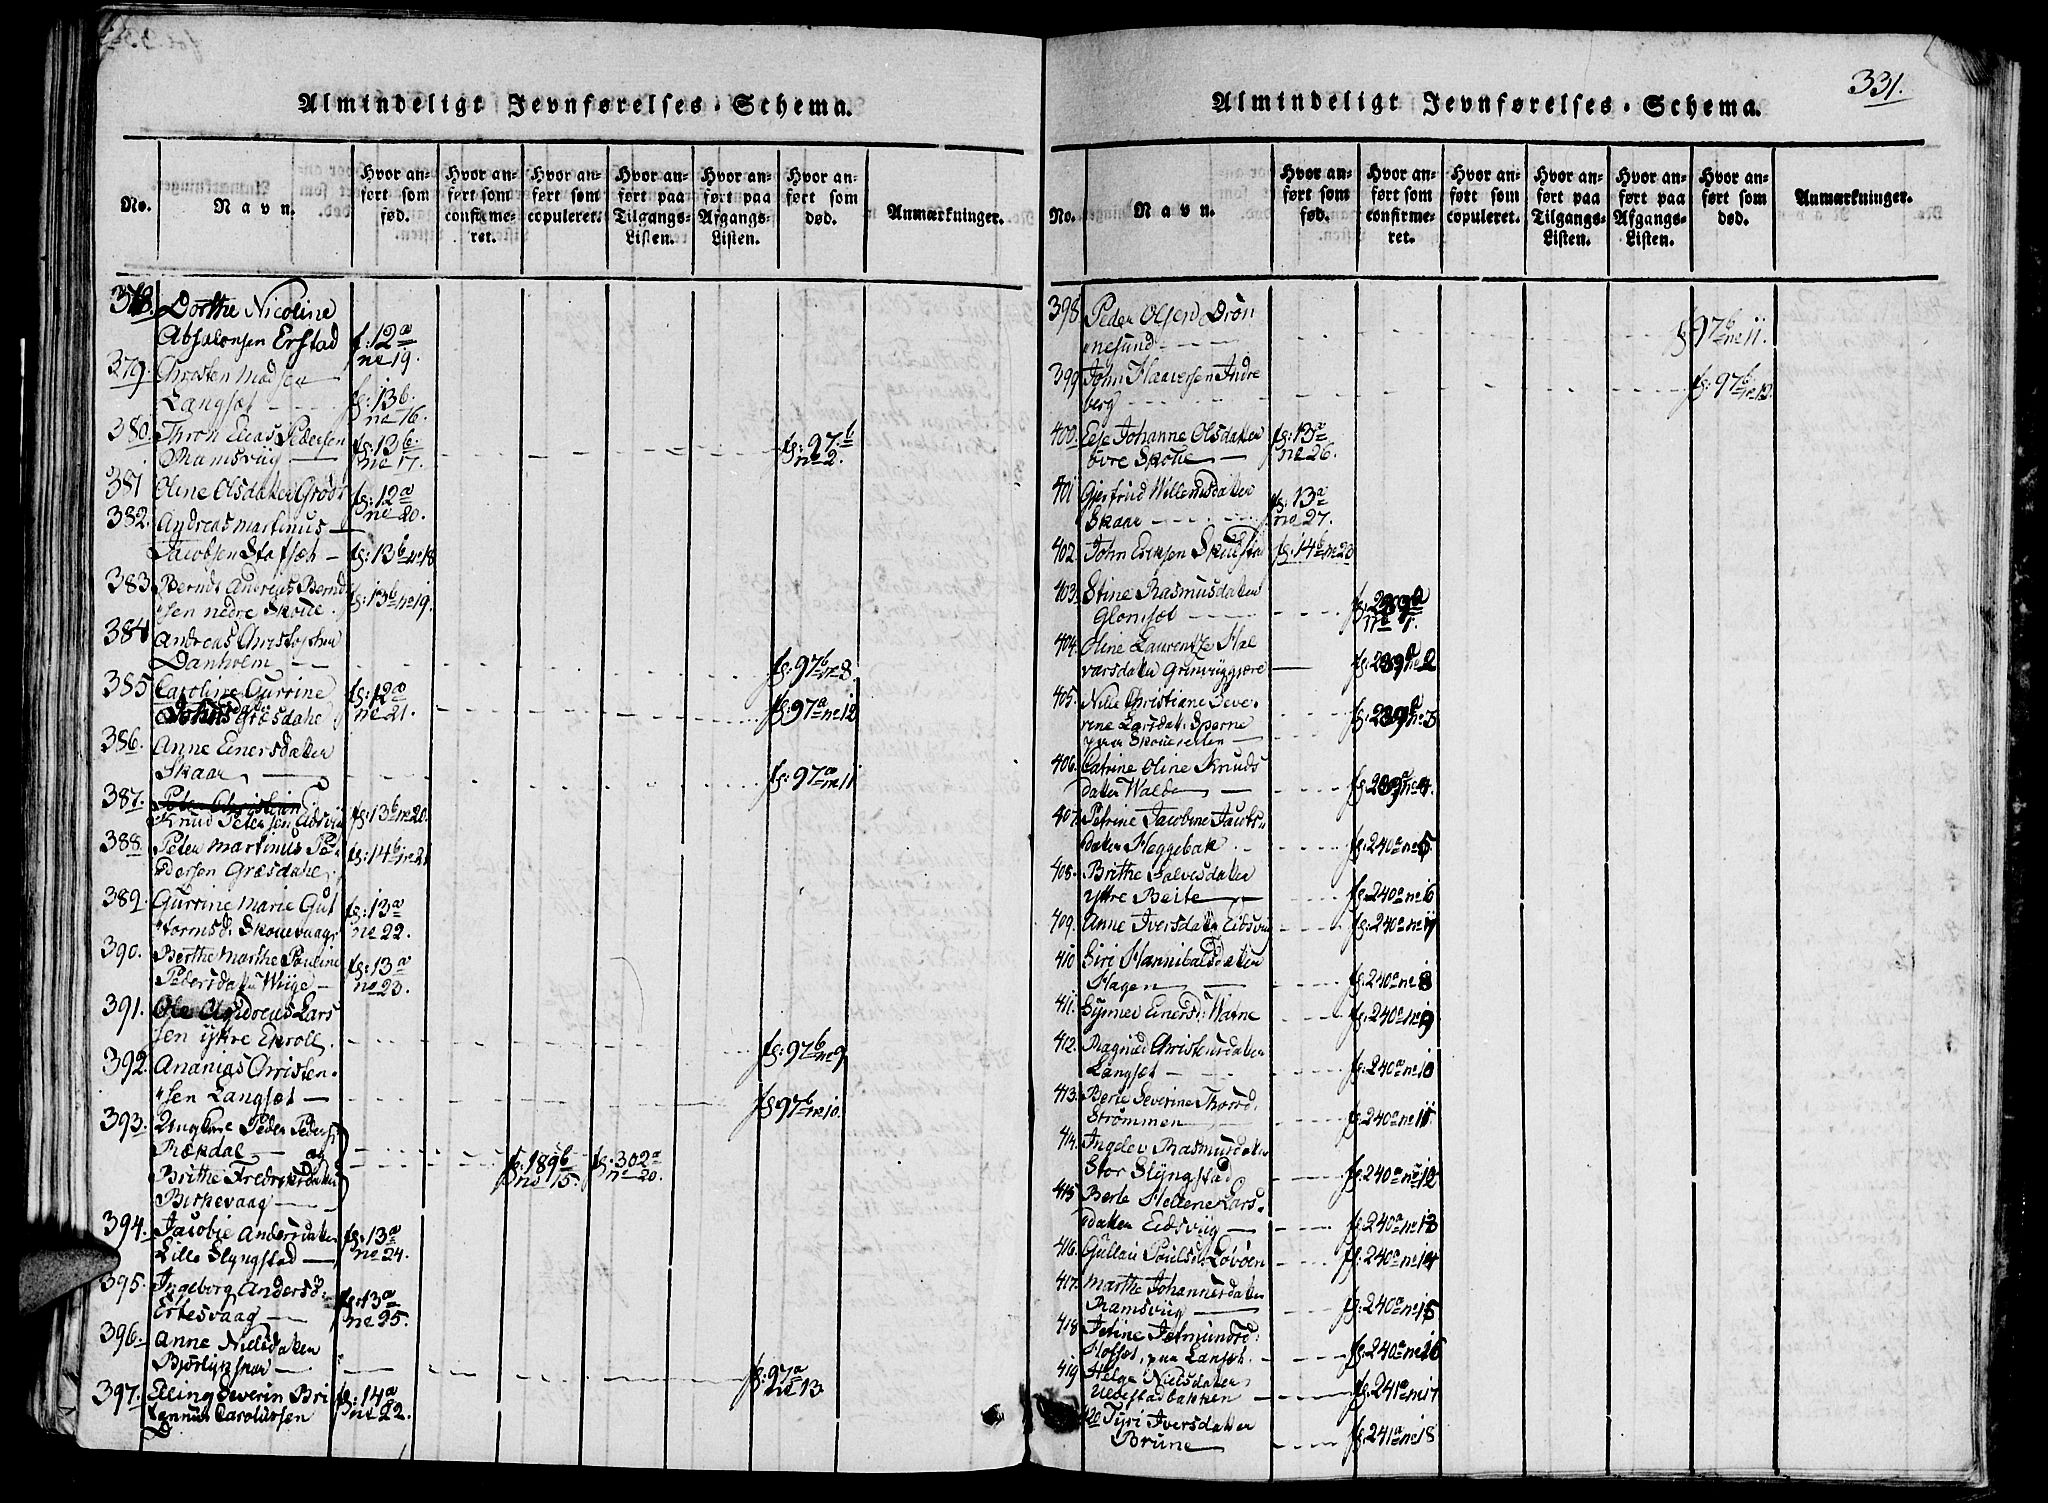 Almindeligt Jevnførelses-Schema.
No.
Navn.
Hvor an-
ført som
fød.
Hvor an-
ført som
confirme-
ret.
Hvor an-
ført som
copuleret.
Hvor an-
ført paa
Tilgangs-
Listen.
Hvor an-
ført paa
Afgangs-
Listen.
Hvor an-
ført som
død.
Anmærkninger.
378. Dorthe Nicoline
Absalonsen Erstad f: 12a
no 19.
379. Christen Madsen
Langsæt fg: 13b
no 16.
380. Thron Elias Pedersen fg: 13b fg: 97b
Ramsvüg no 17. no 2.
381 Oline Olsdatter fg: 12a
no 20.
382. Andreas Martinus
Jacobsen fg: 13b no 18
383 Bernt Andreas Bernt
sen nedre Skoue. fg: 13b no 19.
384 Andreas Christophen
Danholm fg: 97b no 8.
385 Caroline Gurrine fg: 12a
Græsdahl no 21. fg: 97a no 12
386. Anne Einersdatter
Skaar fg: 97a no 11
387. Peter Christian
Knud Petersen Eidsvüg fg: 13b no 20.
388. Peter Martinus Pe
dersen Græsdahl fg: 14b no 21
389. Gurrine Marie Gut fg: 13a
tormsd: Skouevaag no 22.
390. Berthe Marthe Pauline fg: 13a
Pedersdatter Wiige no 23.
391. Ole Andreas Lars
sen ÿttre Ekroll. fg: 97b no 9
392. Ananias Christen
sen Langsæt fg 97b no 10.
393. Ungkarl Peder Peders:
Rækdal og fg: 189b fg: 302a
Brithe Fredriksdatter no 15. no 20.
Birkevaag
394. Jacobie Andersdatter fg: 13a
Lille Slyngstad no 24.
395. Ingeborg Andersd: fg: 13a
Ertesvaag no 25.
396. Anne Nielsdatter
fg: 97a
no 13
397. Elling Severin Bri fg: 14a
tannus Carolussen no 22.
331.
Almindeligt Jevnførelses-Schema.
No.
Navn.
Hvor an-
ført som
fød.
Hvor an-
ført som
confirme-
ret.
Hvor an-
ført som
copuleret.
Hvor an-
ført paa
Tilgangs-
Listen.
Hvor an-
ført paa
Afgangs-
Listen.
Hvor an-
ført som
død.
Anmærkninger.
398. Peder Olsen Drön
nesund fg 97b no 11.
399 John Haaversen Indre
berg fg: 97b no 12.
400. Johanne Olsdatter fg: 13a
övre Skoue no 26.
401 Giertrud Willemsdatter fg: 13a
Skaar no 27.
402. John Eriksen fg: 14b no 23
403. Stine Rasmusdatter fg: 239a
Glomsæt no 1.
404. Oline Laurentze Hal
varsdatter fg: 239a no 2
405. Christiane Seve
rine Larsdat: fg: 239a no 3
406. Catrine Oline Knuds
datter Walde fg: 239a no 4.
407. Petrine Jacobine Jacobs
datter Heggebak fg: 240a no 5
408. Brithe Salvesdatter
ÿttre Beite fg: 240a no 6
409. Anne Iversdatter Eidsvüg fg: 240a no 7
410 Siri Hannibalsdatter
Hagen fg: 240a no 8
411. Sÿnnev Einersd: Watne fg: 240a no 9
412. Ragnild Christensdatter
Langsæt fg: 240a no 10
413. Berte Severine Thorsd:
Strømmen fg: 240a no 11
414. Ingelev Rasmusdatter
Stor Slÿngstad fg: 240a no 12
415 Berte Hellene Lars
datter Eidsvüg fg: 240a no 13
416. Gullau Poulsd: Lövöen fg: 240a no 14
417. Marthe Johannesdatter
Ramsvüg fg: 240a no 15
418 Jetmundsd:
Hofset, paa Lanset. fg: 240a no 16
419 Helge Nielsdatter
Uldestadbakken fg: 241a no 17
420 Tyri Iversdatter
Brune fg: 241a no 18